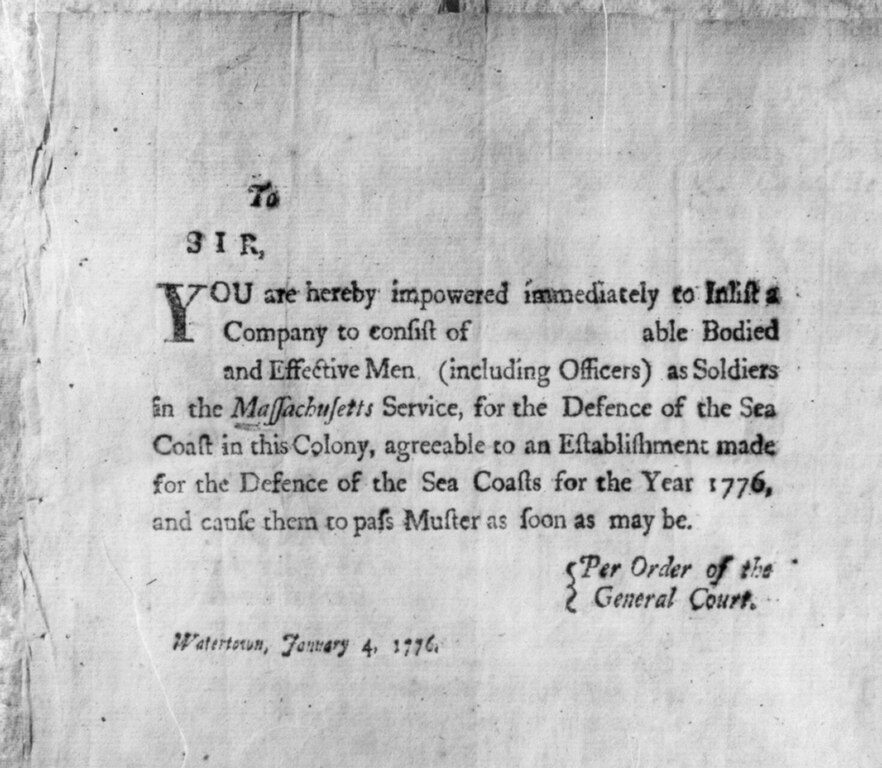 To
SIR,
YOU are hereby impowered immediately to Inliſt a
Company to conſiſt of able Bodied
and Effective Men (including Officers) as Soldiers
in the Maſſachuſetts Service, for the Defence of the Sea
Coaſt in this Colony, agreeable to an Eſtabliſhment made
for the Defence of the Sea Coaſts for the Year 1776,
and cauſe them to paſs Muſter as ſoon as may be.
{Per Order of the
General Court.
Watertown, January 4, 1776.